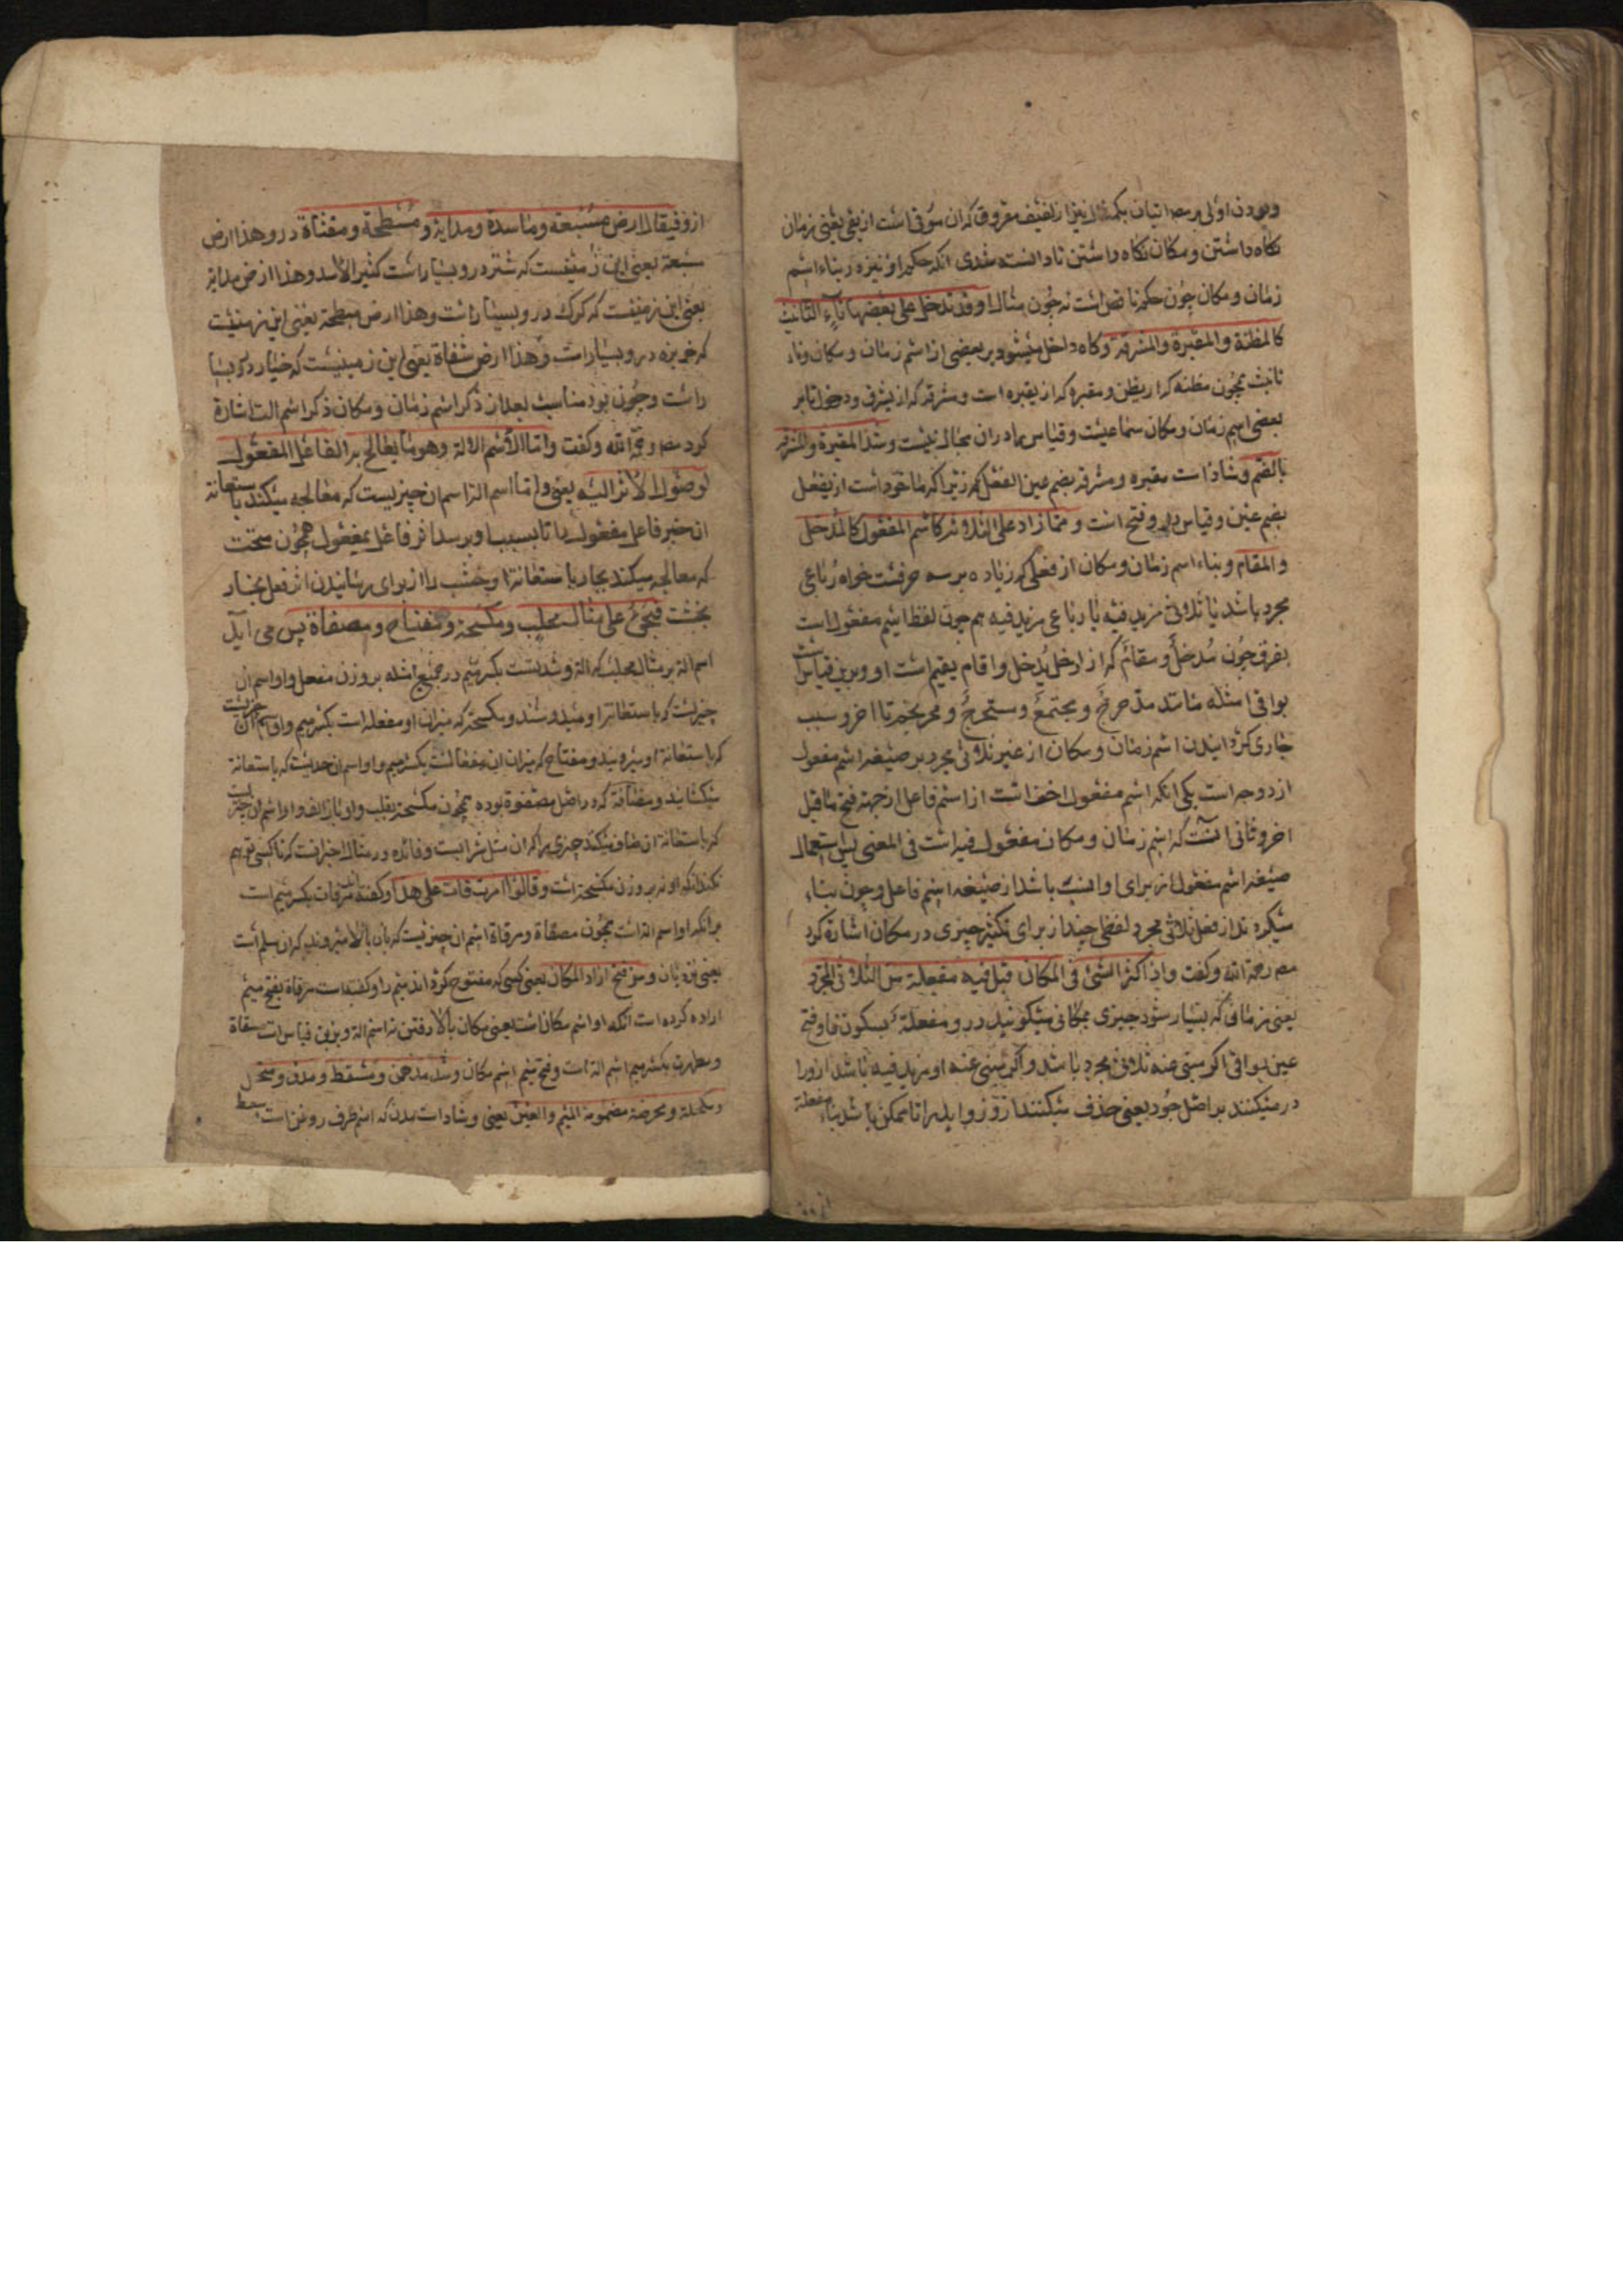 نکاه داشتن و مکان نکاه داشتن تا دانسته شدی انکه حکم او نیز در بناء اسم
زمان و مکان چون حکم ناقص است نه چون مثال او وقد تدخل علی بعضها تاء التانیث
کالمظنة والمقبرة والمشرقة و کاه داخل میشود بر بعضی از اسم زمان و مکان تاء
تانیث همچون مظنه که از یظن و مقبره که از یقبر است و مشرقه که از یشرق و دخول تا بر
بعضی اسم زمان و مکان سماعیست و قیاس را در ان مجال نیست و شذ المقبرة والمشرقة
بالضم و شاذ است مقبره و مشرقه بضم عین الفعل که زیرا که ماخوذ است از یفعل
بضم عین و قیاس فتح است و مما زاد علی الثلاثة کاسم المفعول کالمدخل
والمقام و بناء اسم زمان و مکان از فعلی که زیاده بر سه حرفست خواه رباعی
مجرد باشد یا ثلاثی مزید فیه یا رباعی مزید فیه هم چون لفظ اسم مفعول است
بفرق چون مدخل و مقام که از ادخل یدخل و اقام یقیم است و برین قیاس است
بواقی امثله مانند مدحرج و مجتمع و مستخرج و محرنجم تا اخر و سبب
جاری کردانیدن اسم زمان و مکان از غیر ثلاثی مجرد بر صیغه اسم مفعول
از دو وجه است یکی انکه اسم مفعول اخف است از اسم فاعل از جهة فتح ماقبل
اخر و ثانی انست که اسم زمان و مکان مفعول فیه است فی المعنی پس استعمال
صیغه اسم مفعول از برای او انسب باشد از صیغه اسم فاعل و چون بناء
میکردند از فعل ثلاثی مجرد لفظی چند از برای تکثیر چیزی در مکان اشارة کرد
مصـ رحمة الله و کفت واذا کثر الشئ فی المکان قیل فیه مفعلة من الثلاثی المجرد
یعنی زمانی که بسیار شود چیزی بمکانی میکویند درو مفعلة بسکون فا و فتح
عین بواقی اکر مبنی عنه ثلاثی مجرد باشد و اکر مبنی عنه او مزید فیه باشد او را
رد میکنند بر اصل خود یعنی حذف میکنند از و زواید را تا ممکن باشد بناء مفعلة
ازو فیقال ارض مسبعة و ماسدة و مذابة و مبطخة و مقثاة درو هذا ارض
مسبعة یعنی این زمینیست که شیر درو بسیار است کثیر الاسد و هذا ارض مذابة
یعنی این زمینست که کرک درو بسیار است و هذا ارض مبطخة یعنی این زمینیست
که خربزه درو بسیار است و هذا ارض مقثاة یعنی این زمینیست که خیار درو بسیا
راست و چون بود مناسب بعد از ذکر اسم زمان و مکان ذکر اسم الت اشارة
کرد مصـ رحمة الله و کفت و اما الاسم الالة و هو ما یعالج به الفاعل المفعول
لوصول الاثر الیه یعنی و اما اسم الة اسم ان چیزیست که معالجه میکند باستعانة
ان چیز فاعل مفعول را تا بسبب او برسد اثر فاعل بمفعول همچون منحت
که معالجه میکند نجار باستعانة او خشب را از برای رسانیدن اثر فعل نجار
بخشب فیجئ علی مثال محلب و مکسحة و مفتاح و مصفاة پس می اید
اسم الة بر مثال محلب که الة دوشیدنست بکسر میم در جمیع امثله بر وزن مفعل و او اسم ان
چیزیست که باستعانة او میدوشند و مکسحة که میزان او مفعلة است بکسر میم و او اسم ان چیزیست
که باستعانة او میروبند و مفتاح که میزان ان مفعال است بکسر میم و او اسم ان چیزیست که باستعانة
میکشایند و مصفاة که در اصل مصفوة بوده همچون مکسحة بقلب واو بالف و او اسم ان چیزیست
که باستعانة ان صاف میکنند چیزی را که ان مثل شرابست و فائده در مثال اخیر انست که تا کسی توهم
نکند که او نه بر وزن مکسحة است و قالوا مرقات علی هذا و کفته اند مرقات بکسر میم است
بر انکه او اسم الة است همچون مصفاة و مرقاة اسم ان چیزیست که بان بالا میروند که ان سلم است
یعنی نردبان و من فتح اراد المکان یعنی کسی که مفتوح کرداند میم را و کفته است مرقاة بفتح میم
اراده کرده است انکه او اسم مکان است یعنی مکان بالا رفتن نه اسم الة و برین قیاس است مسقاة
و مطهرة بکسر میم اسم الة است و فتح میم اسم مکان و شذ مدهن و مسعط و مدق و منخل
و مکحلة و محرضة مضمومة المیم والعین یعنی و شاذ است مدهن که اسم ظرف روغن است و مسعط